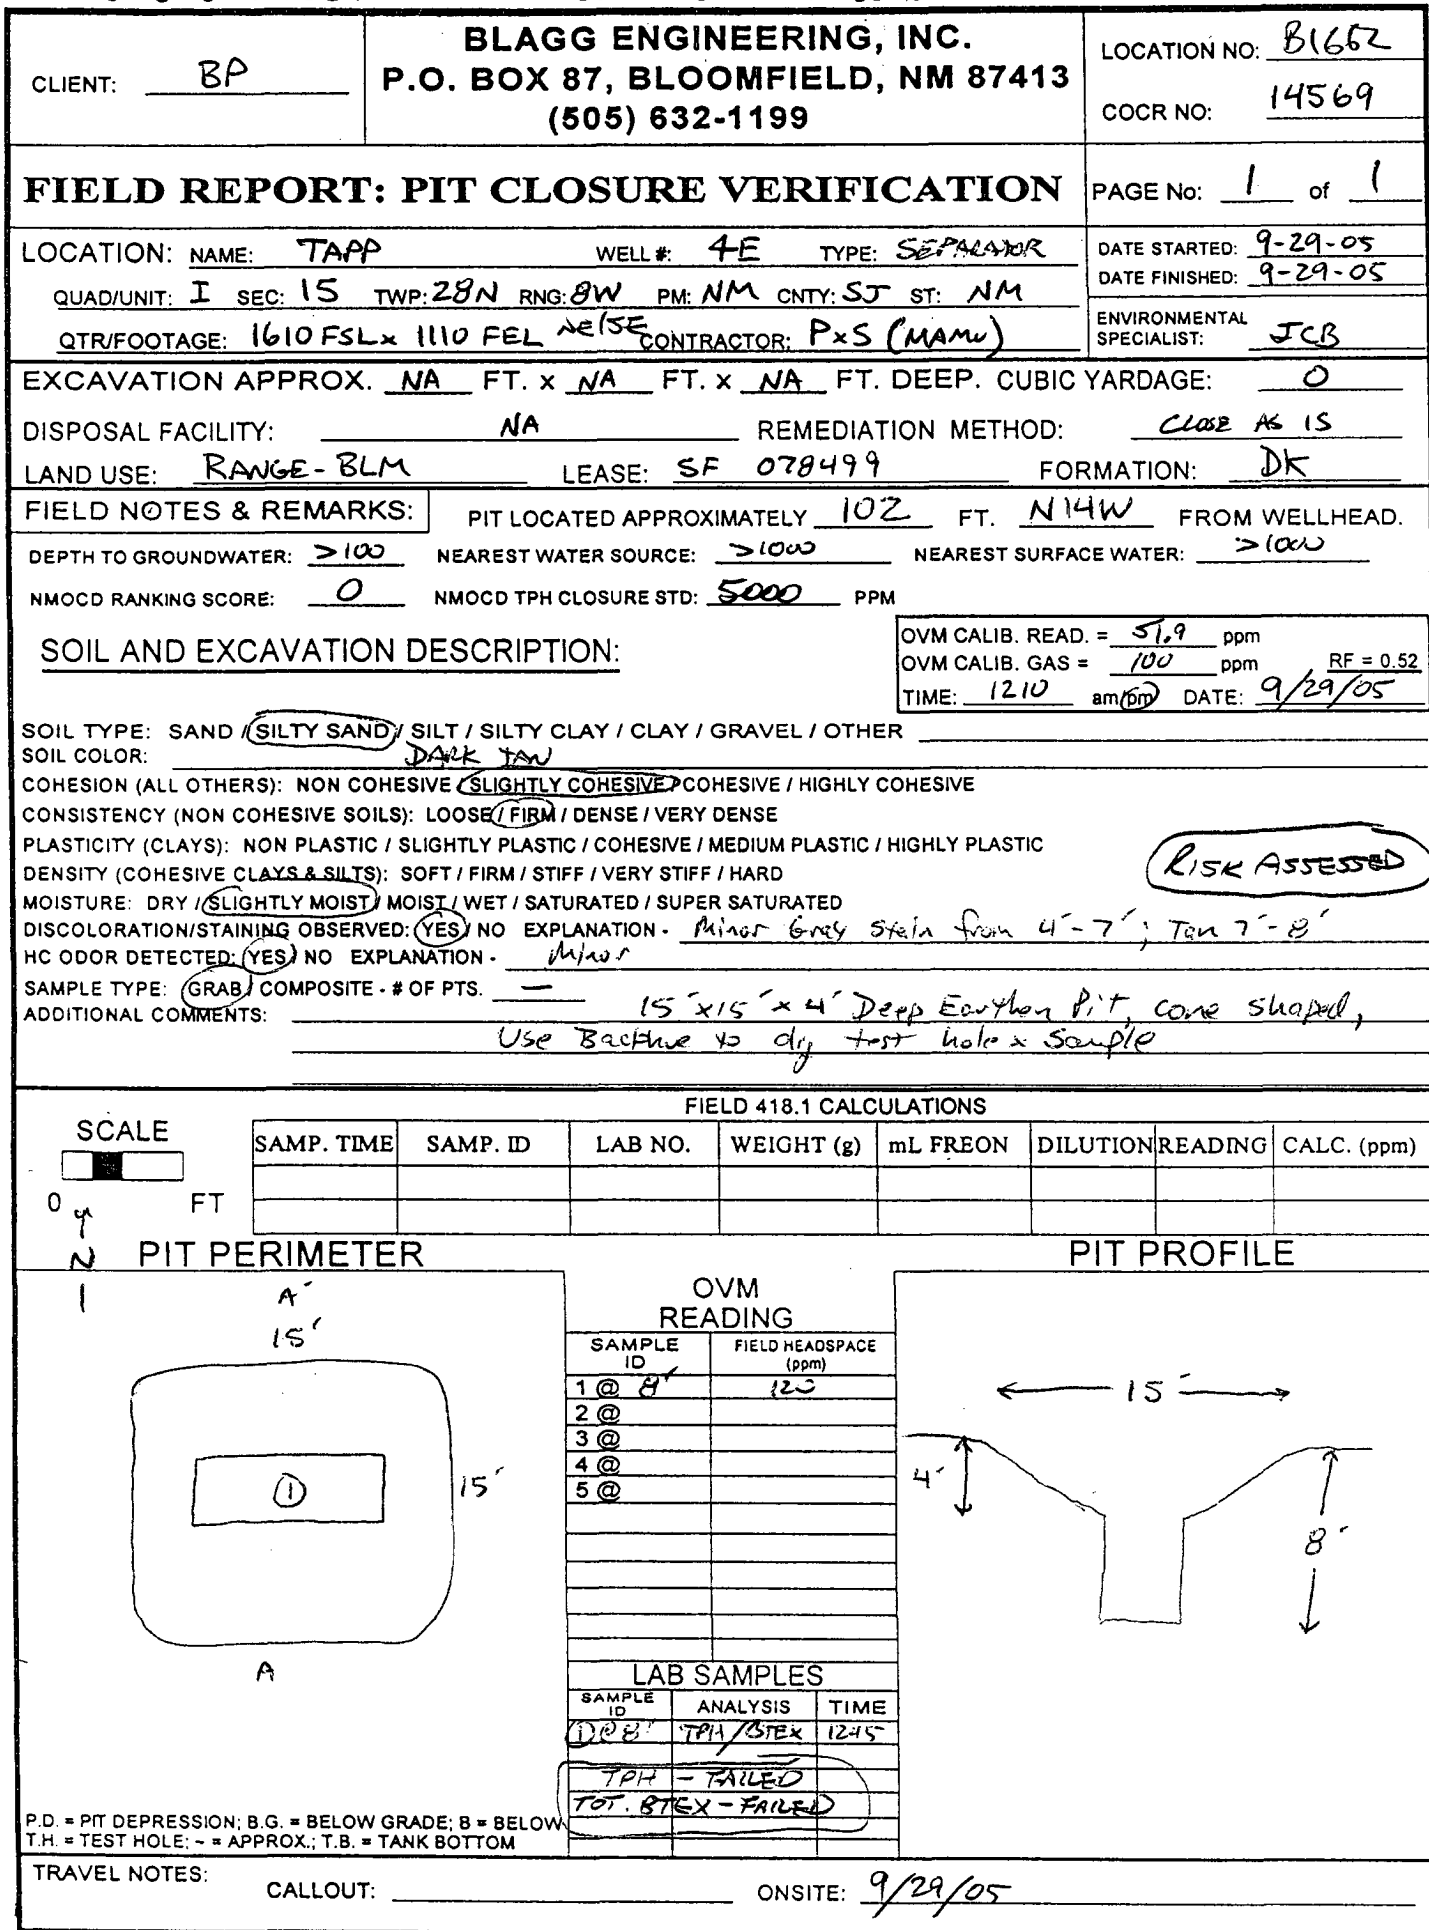 BLAGG ENGINEERING, INC.
P.O. BOX 87, BLOOMFIELD, NM 87413
(505) 632-1199
CLIENT: BP
LOCATION NO: B1662
COCR NO: 14569
FIELD REPORT: PIT CLOSURE VERIFICATION
PAGE No: 1 of 1
LOCATION: NAME: TAPP WELL #: 4E TYPE: SEPARATOR
DATE STARTED: 9-29-05
DATE FINISHED: 9-29-05
QUAD/UNIT: I SEC: 15 TWP: 28N RNG: 8W PM: NM CNTY: SJ ST: NM
QTR/FOOTAGE: 1610 FSL x 1110 FEL NE/SE CONTRACTOR: PxS
ENVIRONMENTAL SPECIALIST: JCB
EXCAVATION APPROX. NA FT. x NA FT. x NA FT. DEEP. CUBIC YARDAGE: 0
DISPOSAL FACILITY: NA REMEDIATION METHOD: CLOSE AS IS
LAND USE: RANGE - BLM LEASE: SF 078499 FORMATION: DK
FIELD NOTES & REMARKS: PIT LOCATED APPROXIMATELY 102 FT. N14W FROM WELLHEAD.
DEPTH TO GROUNDWATER: >100 NEAREST WATER SOURCE: >1000 NEAREST SURFACE WATER: >1000
NMOCD RANKING SCORE: 0 NMOCD TPH CLOSURE STD: 5000 PPM
SOIL AND EXCAVATION DESCRIPTION:
OVM CALIB. READ. = 51.9 ppm
OVM CALIB. GAS = 100 ppm RF = 0.52
TIME: 1210 am/pm DATE: 9/29/05
SOIL TYPE: SAND / SILTY SAND / SILT / SILTY CLAY / CLAY / GRAVEL / OTHER
SOIL COLOR: DARK TAN
COHESION (ALL OTHERS): NON COHESIVE / SLIGHTLY COHESIVE / COHESIVE / HIGHLY COHESIVE
CONSISTENCY (NON COHESIVE SOILS): LOOSE / FIRM / DENSE / VERY DENSE
PLASTICITY (CLAYS): NON PLASTIC / SLIGHTLY PLASTIC / COHESIVE / MEDIUM PLASTIC / HIGHLY PLASTIC
DENSITY (COHESIVE CLAYS & SILTS): SOFT / FIRM / STIFF / VERY STIFF / HARD
RISK ASSESSED
MOISTURE: DRY / SLIGHTLY MOIST / MOIST / WET / SATURATED / SUPER SATURATED
DISCOLORATION/STAINING OBSERVED: YES / NO EXPLANATION - Minor Gray Stain from 4' - 7'; Tan 7' - 8'
HC ODOR DETECTED: YES / NO EXPLANATION - Minor
SAMPLE TYPE: GRAB / COMPOSITE - # OF PTS. —
ADDITIONAL COMMENTS: 15' x 15' x 4' Deep Earthen Pit, cone shaped,
Use Backhoe to dig test hole x Sample
FIELD 418.1 CALCULATIONS
SCALE
0 FT
SAMP. TIME SAMP. ID LAB NO. WEIGHT (g) mL FREON DILUTION READING CALC. (ppm)
N
PIT PERIMETER
PIT PROFILE
A'
15'
15'
1
A
OVM READING
SAMPLE ID FIELD HEADSPACE (ppm)
1 @ 8' 120
2 @
3 @
4 @
5 @
15'
4'
8'
LAB SAMPLES
SAMPLE ID ANALYSIS TIME
1 @ 8' TPH/BTEX 1245
TPH - FAILED
TOT. BTEX - FAILED
P.D. = PIT DEPRESSION; B.G. = BELOW GRADE; B = BELOW
T.H. = TEST HOLE; ~ = APPROX.; T.B. = TANK BOTTOM
TRAVEL NOTES: CALLOUT: ONSITE: 9/29/05